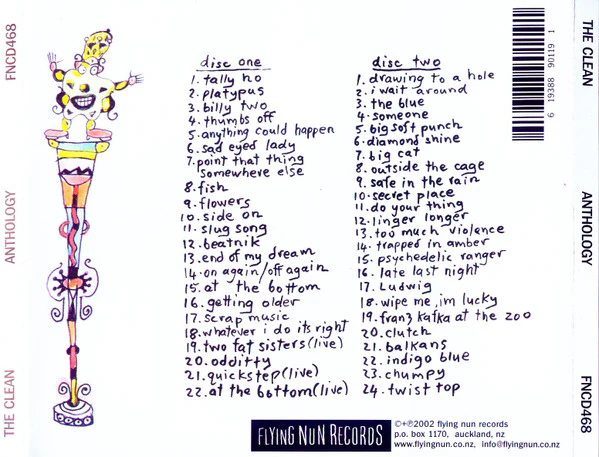 FNCD468
ANTHOLOGY
THE CLEAN
disc one
1. tally ho
2. platypus
3. billy two
4. thumbs off
5. anything could happen
6. sad eyed lady
7. point that thing
somewhere else
8. fish
9. flowers
10. side on
11. slug song
12. beatnik
13. end of my dream
14. on again/off again
15. at the bottom
16. getting older
17. scrap music
18. whatever i do its right
19. two fat sisters (live)
20. odditty
21. quickstep (live)
22. at the bottom (live)
disc two
1. drawing to a hole
2. i wait around
3. the blue
4. someone
5. big soft punch
6. diamond shine
7. big cat
8. outside the cage
9. safe in the rain
10. secret place
11. do your thing
12. linger longer
13. too much violence
14. trapped in amber
15. psychedelic ranger
16. late last night
17. Ludwig
18. wipe me, im lucky
19. franz kafka at the zoo
20. clutch
21. balkans
22. indigo blue
23. chumpy
24. twist top
FLYING NUN RECORDS
©+℗2002 flying nun records
p.o. box 1170, auckland, nz
www.flyingnun.co.nz, info@flyingnun.co.nz
1 19106 88361 9
THE CLEAN
ANTHOLOGY
FNCD468